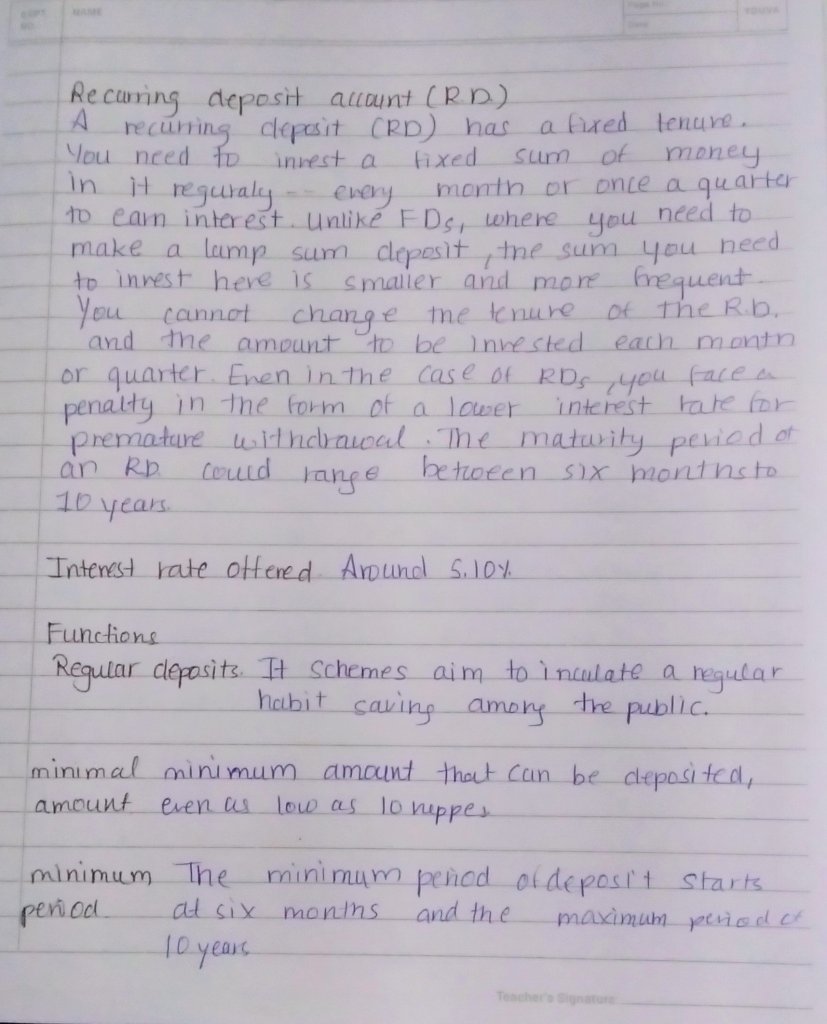 NAME
YOUVA
Recurring deposit account (R.D.)
A recurring deposit (RD) has a fixed tenure.
You need to invest a fixed sum of money
in it reguraly -- every month or once a quarter
to earn interest. Unlike FDs, where you need to
make a lamp sum deposit, the sum you need
to invest here is smaller and more frequent.
You cannot change the tenure of the R.D.
and the amount to be invested each month
or quarter. Even in the case of RDs, you face a
penalty in the form of a lower interest rate for
premature withdrawal. The maturity period of
an RD could range between six months to
10 years.
Interest rate offered Around 5.10%
Functions
Regular deposits. It schemes aim to inculate a regular
habit saving among the public.
minimal minimum amount that can be deposited,
amount even as low as 10 ruppes
minimum The minimum period of deposit starts
period. at six months and the maximum period of
10 years
Teacher's Signature